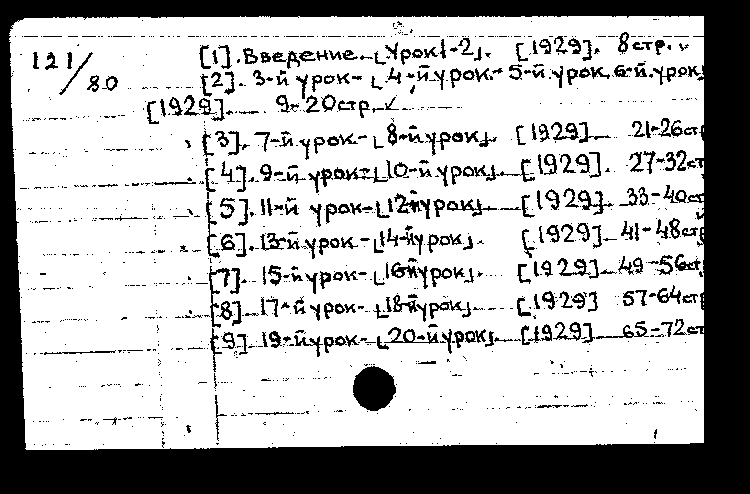 121/80
[1]. Введение. ⌊Урок1-2⌋. [1929]. 8стр.
[2]. 3-й урок- ⌊4-й урок.- 5-й урок, 6-й урок⌋
[1929]. 9-20стр.
[3]. 7-й урок- ⌊8-й урок⌋. [1929]. 21-26стр
[4]. 9-й урок- ⌊10-й урок⌋. [1929]. 27-32ст
[5]. 11-й урок- ⌊12й урок⌋. [1929]. 33-40ст
[6]. 13-й урок- ⌊14-й урок⌋. [1929]. 41-48стр
[7]. 15-й урок- ⌊16й урок⌋. [1929]. 49-56ст
[8]. 17-й урок- ⌊18-й урок⌋. [1929] 57-64стр
[9]. 19-й урок- ⌊20-й урок⌋. [1929]. 65-72ст